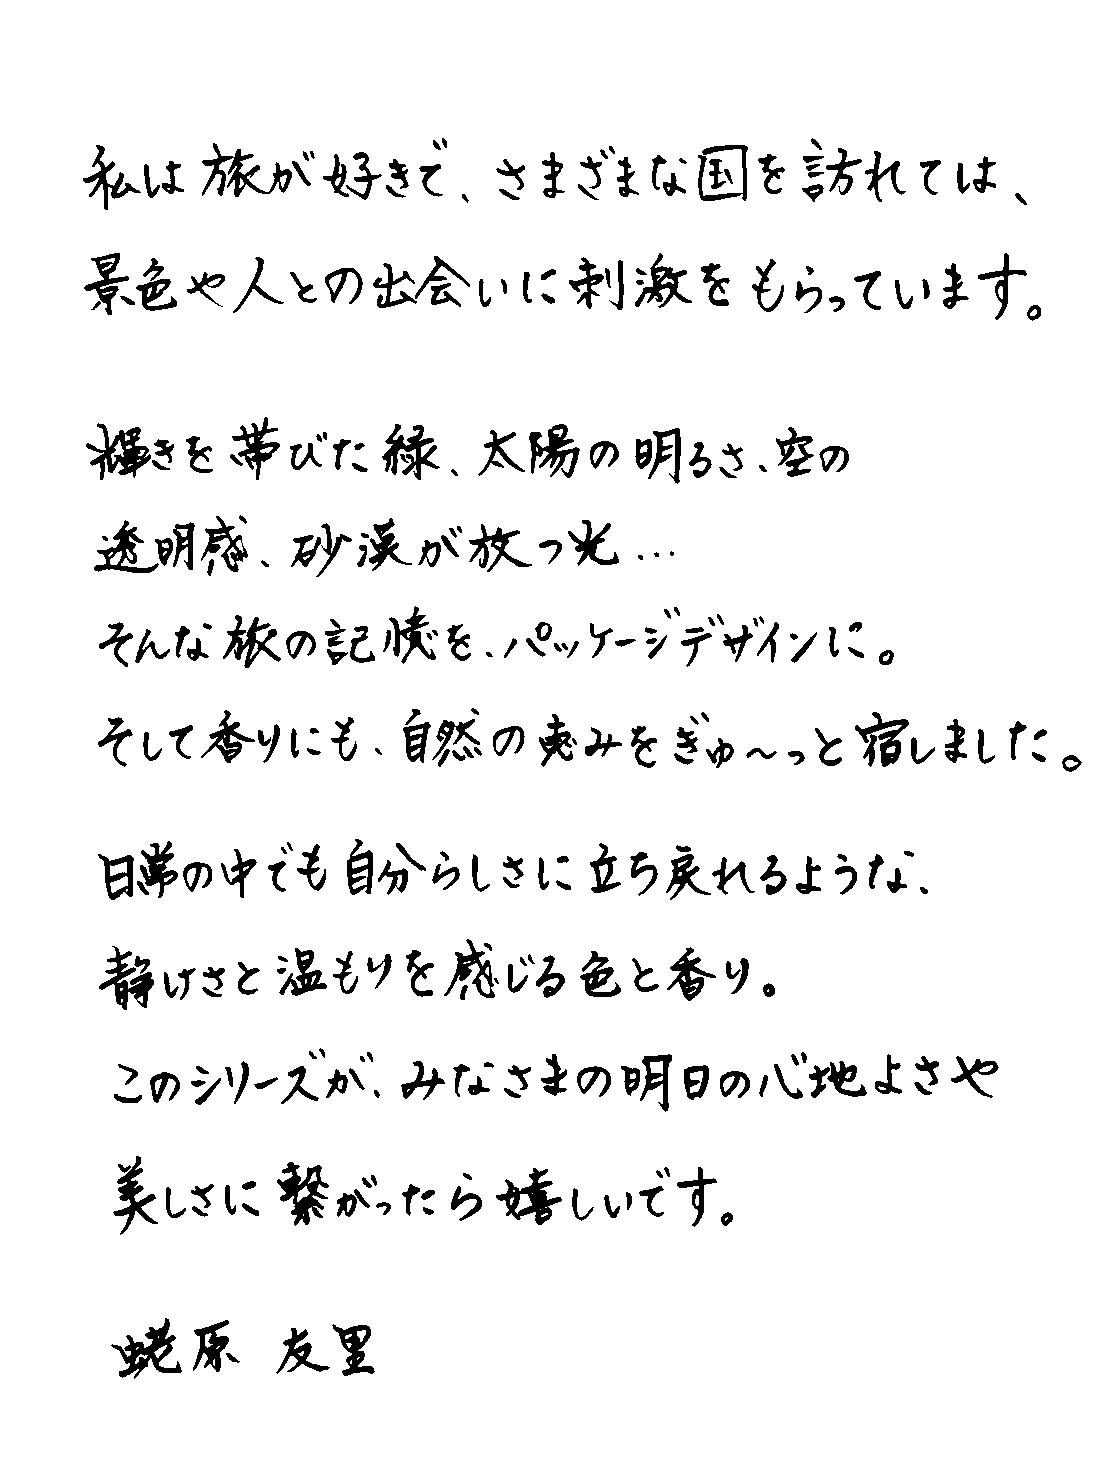 私は旅が好きで、さまざまな国を訪れては、
景色や人との出会いに刺激をもらっています。
輝きを帯びた緑、太陽の明るさ、空の
透明感、砂漠が放つ光…
そんな旅の記憶を、パッケージデザインに。
そして香りにも、自然の恵みをぎゅ〜っと宿しました。
日常の中でも自分らしさに立ち戻れるような、
静けさと温もりを感じる色と香り。
このシリーズが、みなさまの明日の心地よさや
美しさに繋がったら嬉しいです。
蛯原 友里